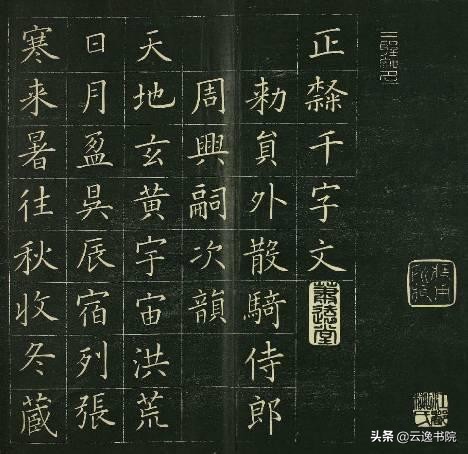 正隸千字文
勑員外散騎侍郎
周興嗣次韻
天地玄黃宇宙洪荒
日月盈昃辰宿列張
寒来暑往秋收冬蔵
头条 @云逸书院